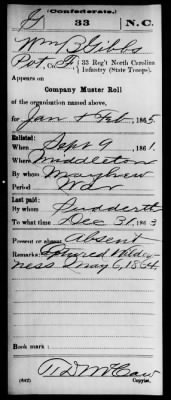 (Confederate.)
G 33 N.C.
Wm B Gibbs
Pvt, Co. G, 33 Reg't North Carolina
Infantry (State Troops).
Appears on
Company Muster Roll
of the organization named above,
for Jan & Feb, 1865.
Enlisted:
When Sept 9, 1861.
Where Middleton
By whom Mayhew
Period War
Last paid:
By whom Sudderth
To what time Dec 31, 1863
Present or absent Absent
Remarks: Captured Wilder-
ness May 6, 1864.
Book mark:
T D McCaw
(642) Copyist.